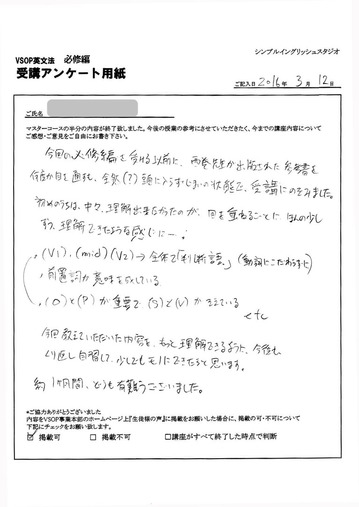 シンプルイングリッシュスタジオ
VSOP英文法 必修編
受講アンケート用紙
ご記入日 2016年 3月 12日
ご氏名
マスターコースの半分の内容が終了致しました。今後の授業の参考にさせていただきたく、今までの講座内容について
ご感想・ご意見をご自由にお書き下さい。
今回の必修編を受ける以前に、西巻先生が出版された参考書を
何度か目を通すも、全然(?)頭に入らずじまいの状態で、受講にのぞみました。
初めのうちは、中々、理解出来なかったのが、回を重ねるごとに ほんの少し
ずつ、理解できたような感じに…!
・(V1), (mid) (V2) → 全体で「判断語」(動詞にこだわらずに)
・前置詞が意味を成している
・(O)と(P)が重要で (S)と(V)が支えている
etc
今回教えていただいた内容を、もっと理解できるように、今後も
くり返し自習して、少しでもモノにできたらと思います。
約1ヶ月間、どうも有難うございました。
*ご協力ありがとうございました
内容をVSOP事業本部のホームページ上『生徒様の声』に掲載をお願いした場合に、掲載の可・不可について
下記にチェックをお願い致します。
☑ 掲載可 □ 掲載不可 □講座がすべて終了した時点で判断